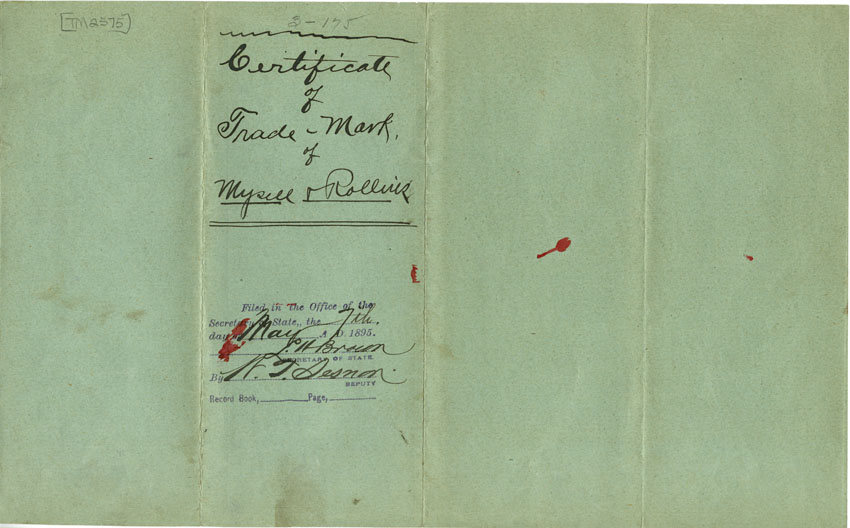 [TM2575]
3-175
Certificate
of
Trade-Mark.
of
Mysell & Rollins
Filed in the Office of the
Secretary of State, the 7th.
day of May A.D. 1895.
L. H. Brown
SECRETARY OF STATE
By W. T. Sesnon.
DEPUTY
Record Book, Page,